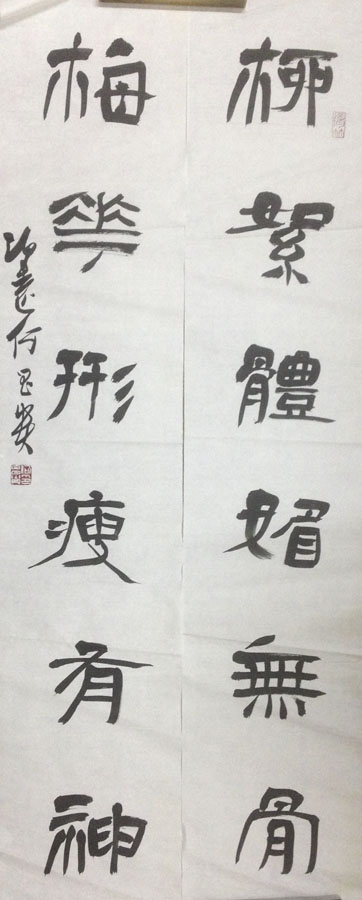 柳絮體媚無骨
梅花形瘦有神